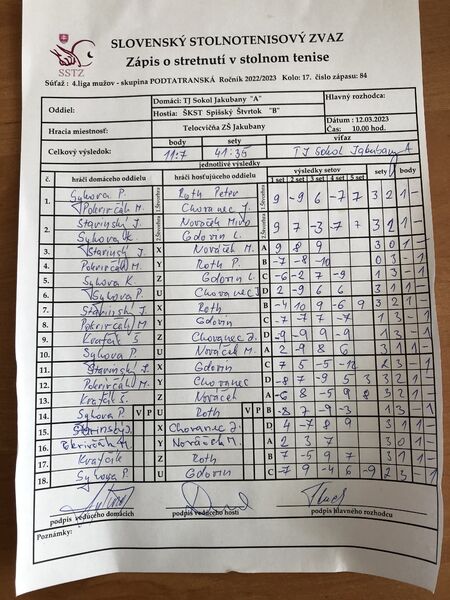 SLOVENSKÝ STOLNOTENISOVÝ ZVAZ
Zápis o stretnutí v stolnom tenise
SSTZ
Súťaž : 4.liga mužov - skupina PODTATRANSKÁ Ročník 2022/2023 Kolo: 17. číslo zápasu: 84
Oddiel: Domáci: TJ Sokol Jakubany "A" Hlavný rozhodca:
Hostia: ŠKST Spišský Štvrtok "B"
Hracia miestnosť: Telocvičňa ZŠ Jakubany Dátum : 12.03.2023
Čas: 10.00 hod.
Celkový výsledok: body sety víťaz
11:7 41:35 TJ Sokol Jakubany A
jednotlivé výsledky
č. hráči domáceho oddielu hráči hosťujúceho oddielu výsledky setov sety body
1 set 2 set 3 set 4 set 5 set
1. Sykova P. 1.štvorhra Roth Peter 9 -9 6 -7 7 3 2 1 -
Pokrivčák M. Chovanec J.
2. Stavinský J. 2.štvorhra Nováček Miro 9 7 -3 -7 7 3 2 1 -
Sykova K. Gdovin L.
3. Stavinský J. X Nováček M. A 9 8 9 3 0 1 -
4. Pokrivčák M. Y Roth P. B -7 -8 -10 0 3 - 1
5. Sykova K. Z Gdovin L. C -6 -2 7 -9 1 3 - 1
6. Sykova P. U Chovanec J. D 2 -9 6 6 3 1 1 -
7. Stavinský J. X Roth B -4 10 9 -6 9 3 2 1 -
8. Pokrivčák M. Y Gdovin C -7 7 -7 -7 1 3 - 1
9. Kvaťák Š. Z Chovanec J. D -9 -9 9 -9 1 3 - 1
10. Sykova P. U Nováček M. A 2 -9 8 6 3 1 1 -
11. Stavinský J. X Gdovin C 7 5 -5 -12 1 3 - 1
12. Pokrivčák M. Y Chovanec D -8 7 -9 5 3 3 2 1 -
13. Kvaťák Š. Z Nováček A -6 8 -5 9 8 3 2 1 -
14. Sykova P. V P U Roth V P B -8 7 -9 -3 1 3 - 1
15. Stavinský J. X Chovanec J. D 4 -7 8 9 3 1 1 -
16. Pokrivčák M. Y Nováček M. A 2 3 7 3 0 1 -
17. Kvaťák Z Roth B 7 -5 9 7 3 1 1 -
18. Sykova P. U Gdovin C -7 9 -4 6 -9 2 3 - 1
podpis vedúceho domácich podpis vedúceho hostí podpis hlavného rozhodcu
Poznámky: